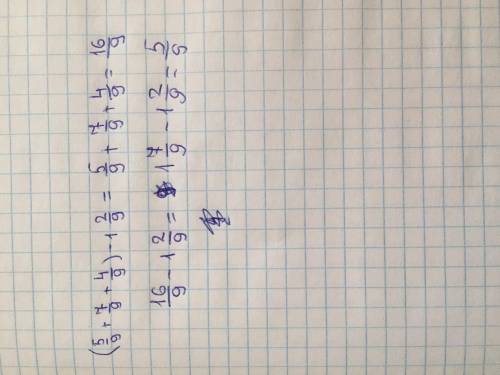 (5/9 + 7/9 + 4/9) - 1 2/9 = 5/9 + 7/9 + 4/9 = 16/9
16/9 - 1 2/9 = 1 7/9 - 1 2/9 = 5/9